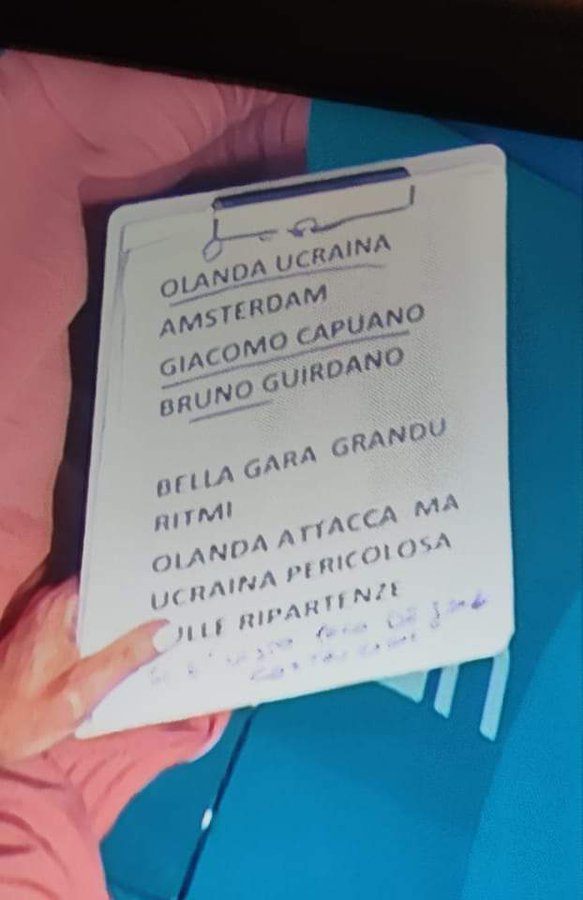 OLANDA UCRAINA
AMSTERDAM
GIACOMO CAPUANO
BRUNO GUIRDANO
BELLA GARA GRANDU
RITMI
OLANDA ATTACCA MA
UCRAINA PERICOLOSA
ULLE RIPARTENZE